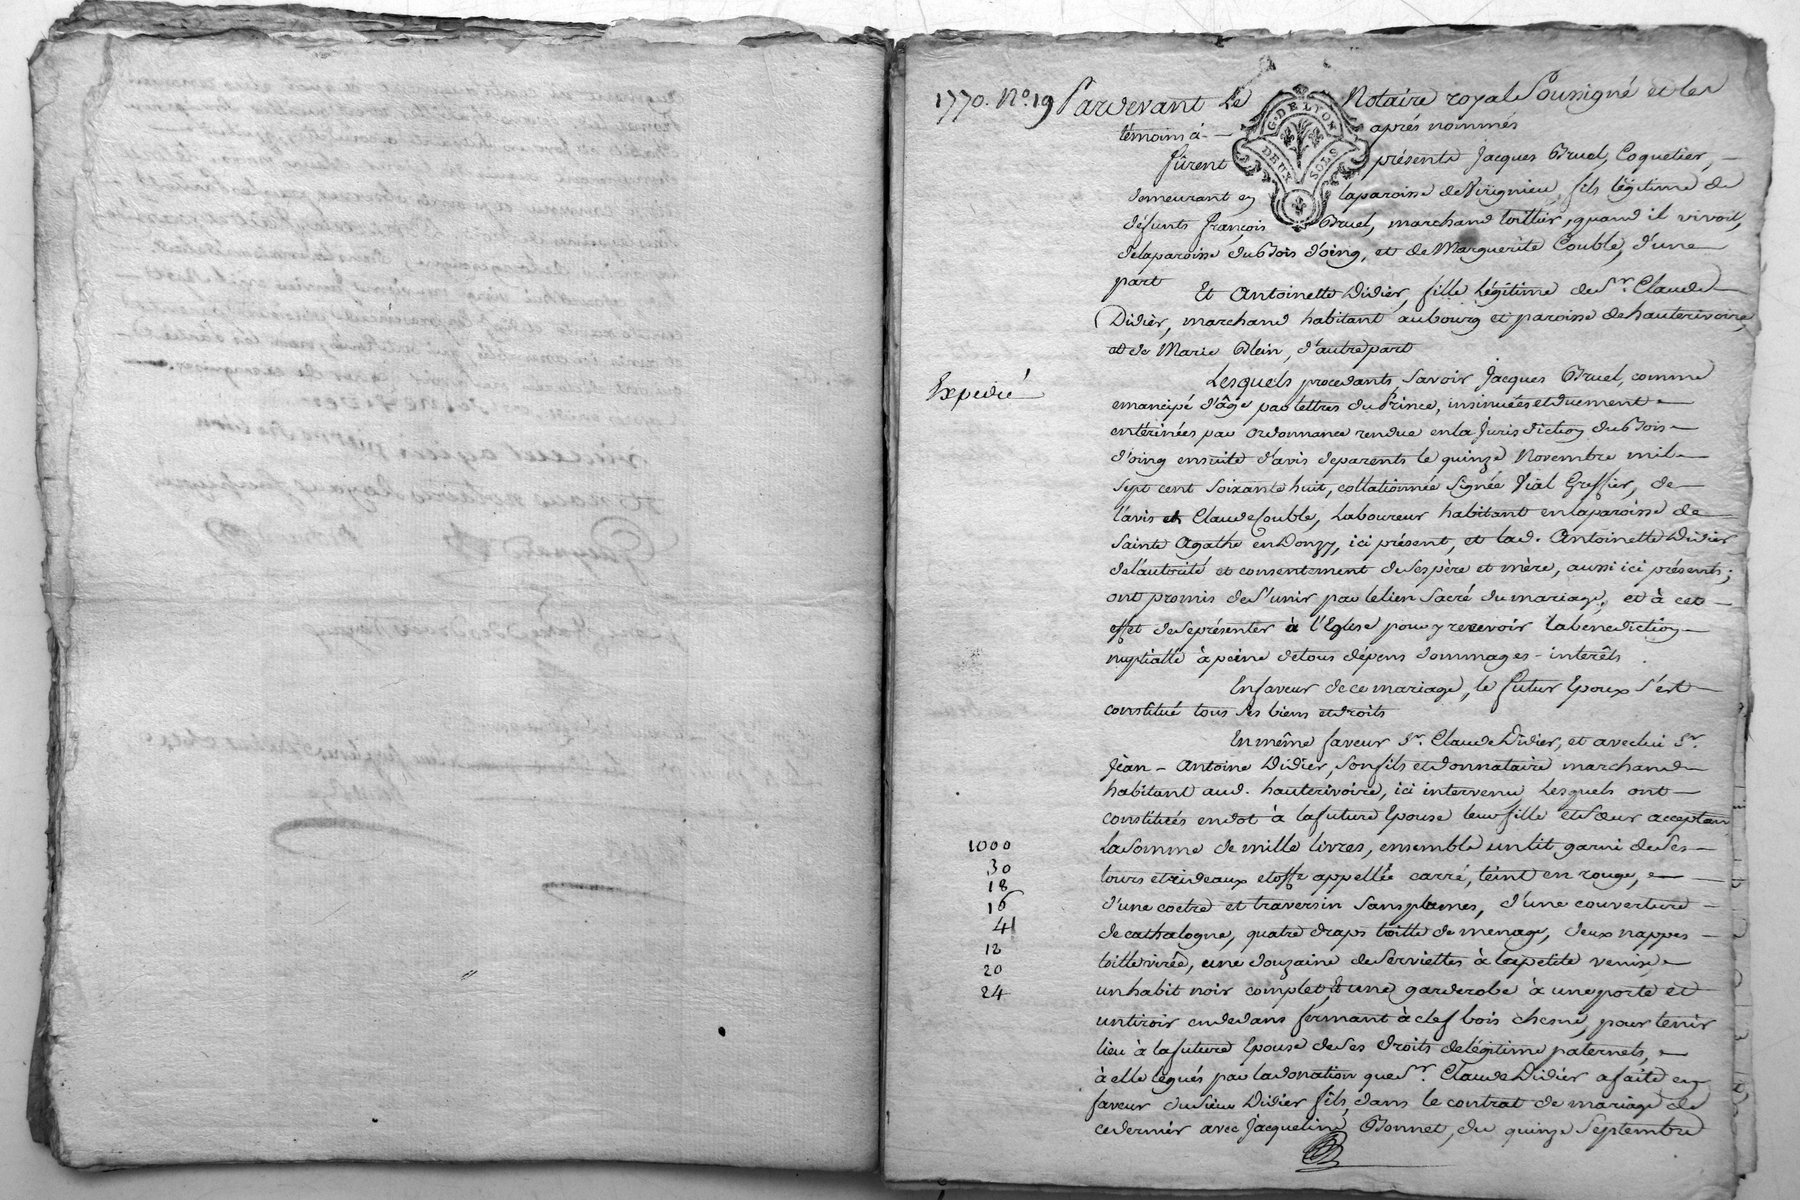 1770. N.o 19 Pardevant Le Notaire royal Soussigné et les
témoins à - après nommés
fûrent présents Jacques Bruel, Coquetier, -
G. DE LYON
DEUX SOLS
demeurant en laparoisse de Virignieu, fils légitime de
défunts françois Bruel, marchand toillier, quand il vivoit,
delaparoisse duBois d'oing, et de Marguerite Couble, d'une
part
Et Antoinette Didier, fille Légitime de Sr. Claude
Didier, marchand habitant aubourg et paroisse de hauterivoire,
et de Marie Blein, d'autre part
Expedié
Lesquels procedants, savoir Jacques Bruel, comme
emancipé d'âge par lettres du Prince, insinuées et duement
entérinées par ordonnance rendue en la Jurisdiction duBois
d'oing ensuite d'avis deparents le quinze Novembre mil
sept cent soixante huit, collationnée signée Vial Greffier, de
l'avis de Claude Couble, Laboureur habitant en laparoisse de
Sainte Agathe en Donzy, ici présent, et lad. Antoinette Didier
del'autorité et consentement de ses père et mère, aussi ici présents;
ont promis de S'unir par le lien sacré du mariage, et à cet
effet de se présenter à l'Eglise pour y recevoir la bénédiction
nuptialle à peine de tous dépens dommages-interêts.
En faveur de ce mariage, le futur Epoux s'est
constitué tous ses biens et droits
En même faveur Sr. Claude Didier, et avec lui Sr.
Jean-Antoine Didier, son fils et donnataire marchand
habitant aud. hauterivoire, ici intervenu Lesquels ont
constitués en dot à la future Epouse leur fille et Sœur acceptan
1000 La somme de mille livres, ensemble un lit garni de Ses
30 tours et rideaux etoffe appellée carré, teint en rouge,
18
16 d'une coetre et traversin sans plumes, d'une couverture
41 de cathalogne, quatre draps toille de menage, deux nappes
12 toille virée, une douzaine de Serviettes à la petite venise
20
24 un habit noir complet, et une garderobe à une porte et
un tiroir en dedans fermant à clef bois chesne, pour tenir
lieu à la future Epouse de Ses droits de légitime paternels,
à elle légués par la donation que Sr. Claude Didier a faite en
faveur du Sieur Didier fils, dans le contrat de mariage de
ce dernier avec Jacqueline Bonnet, du quinze Septembre